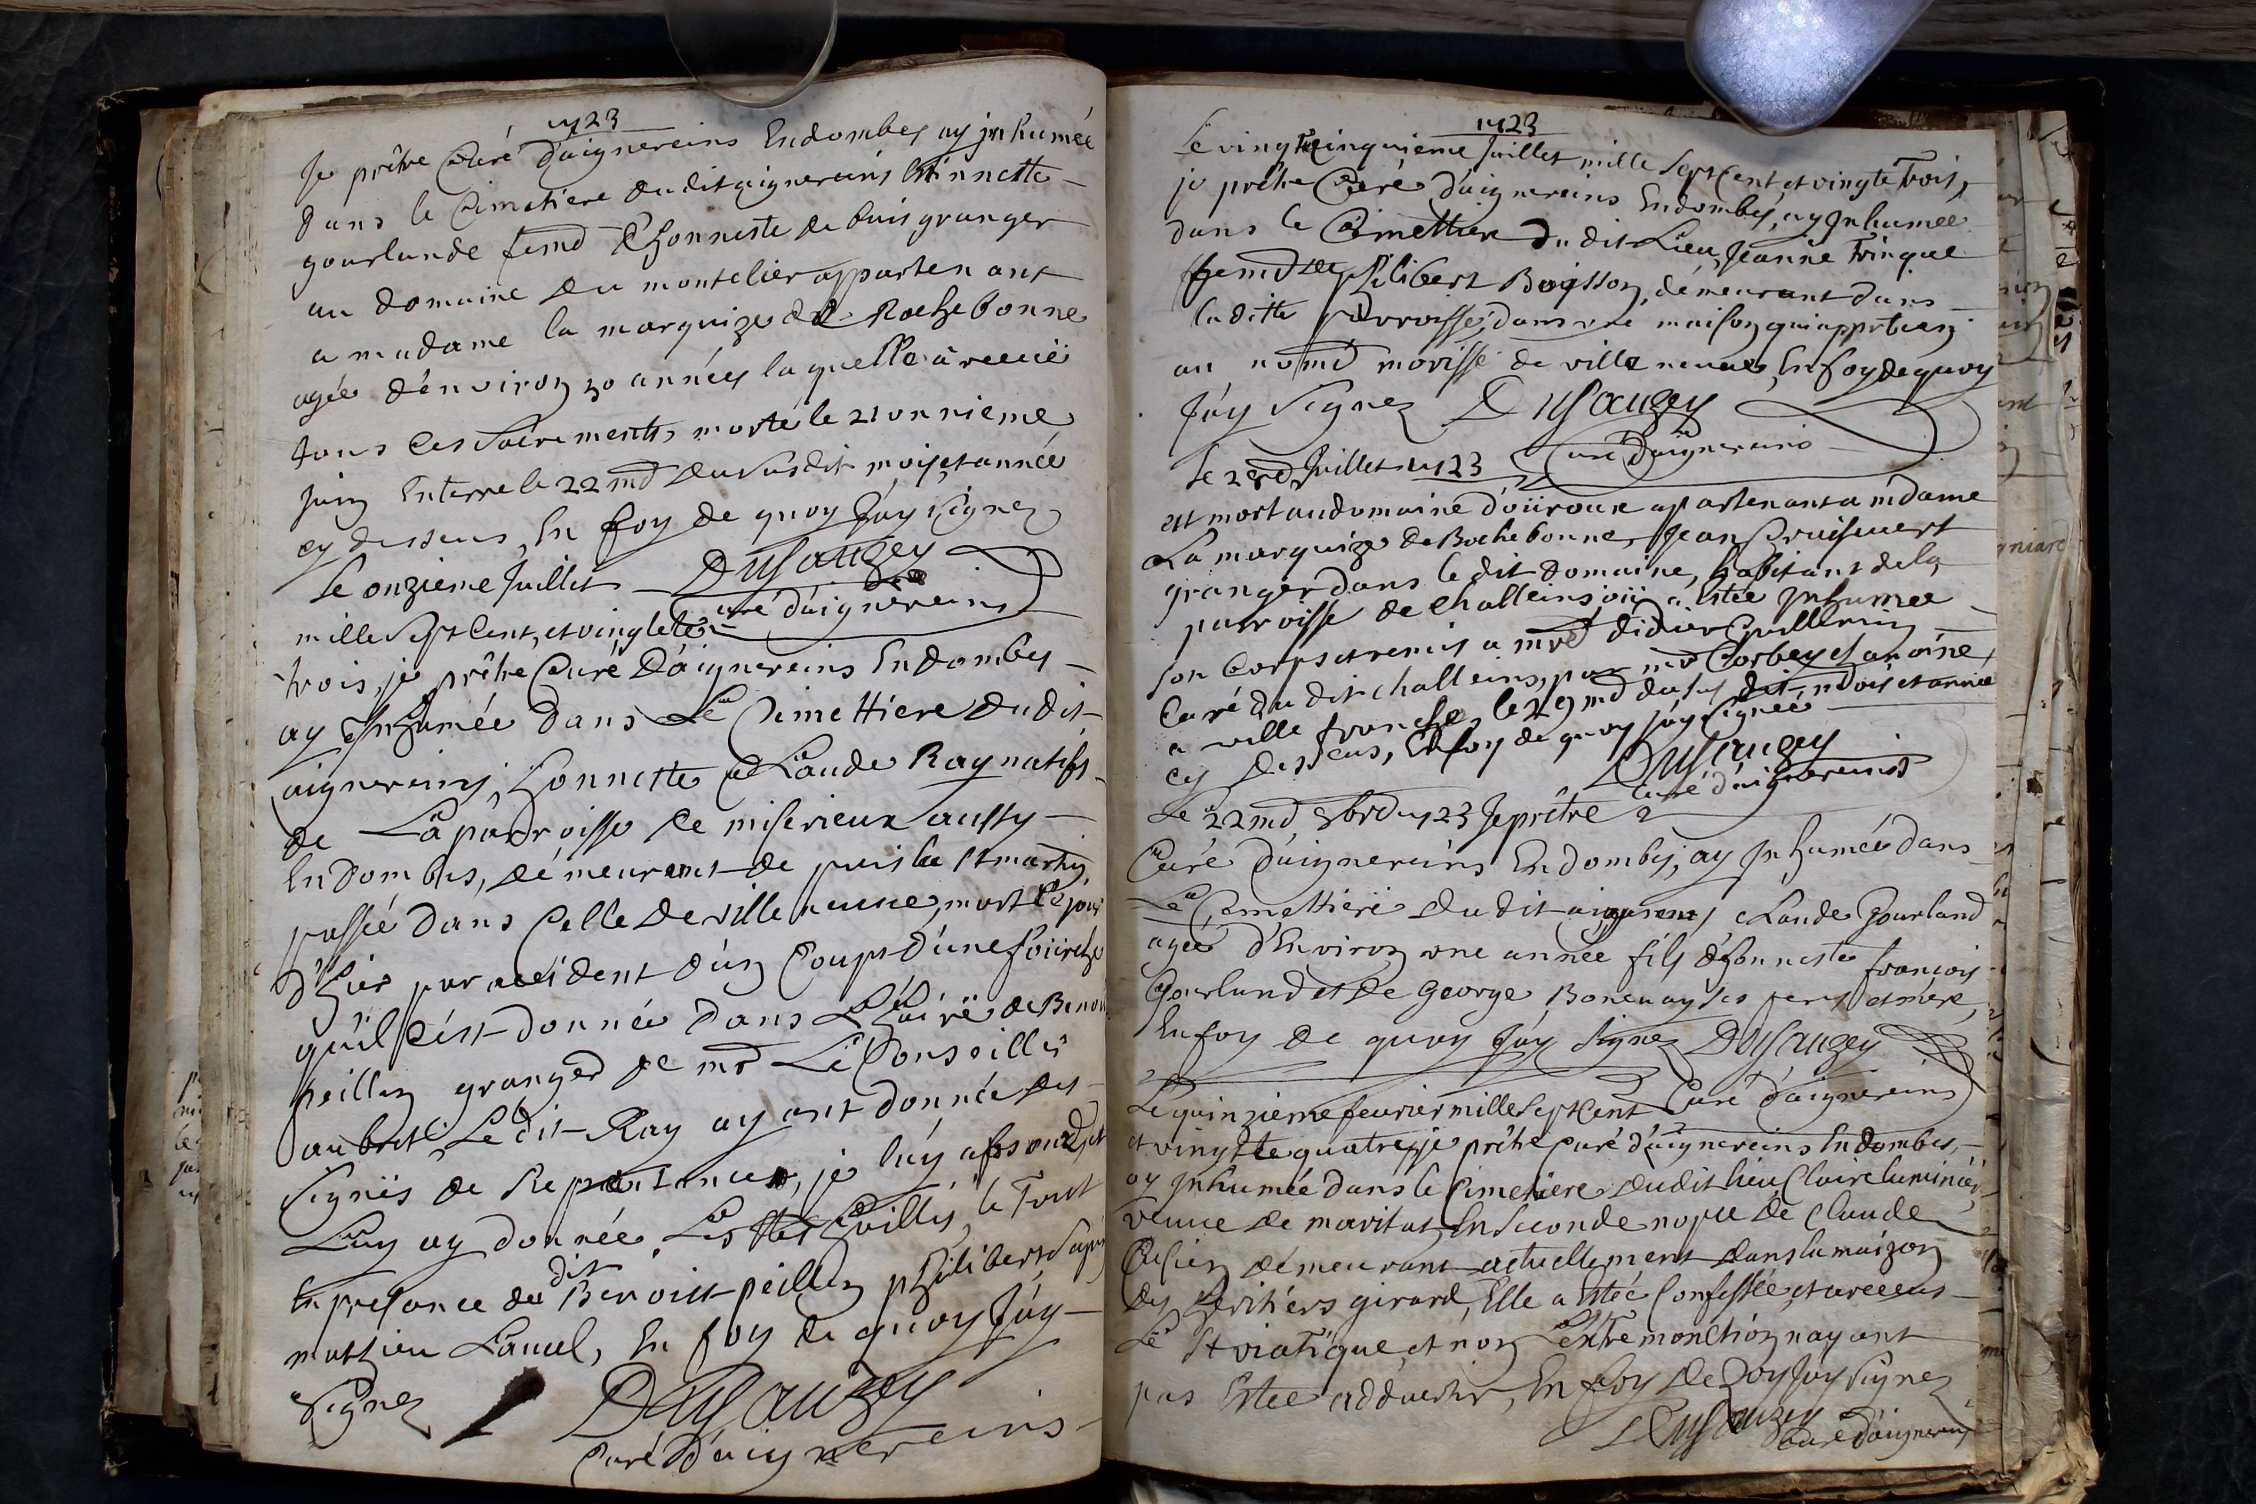 1723
Je prêtre Curé d'aignereins En dombes ay jnhumée
dans le Cimetiere du dit aignereins
gourlande femd d'honneste de Louis granger
au domaine du montelier appartenant
a madame la marquize de Rochebonne
agée d'environ 30 années la quelle à recüe
tous ces Sacrements morte le 21
juin Enterre le 22md du susdit mois et année
cy dessus, En foy de quoy J'ay signez
Le onzieme Juillet Dusauzey
Curé d'aignereins
mille sept Cent, et vingte
trois, je prêtre Curé D'aignereins En dombes
ay Jnhumée dans Le Cimettiere du dit
aignereins, honneste Claude Ray natif
de La parroisse de miserieux aussy
En Dombes, démeurant de puis la St martin
passée dans Celle de ville neuve, mort le jour
D'hier par accident d'un Coups d'une fourche
qu'il c'est donnée dans de Benoit
peillon granger de mr Le Conseiller
aubret Le dit Ray ayant donnée des
Signes de Repentance, je luy absous
Luy ay donnée Les Stes huilles, le Tout
En presance du dit Benoist peillon philibert
mathieu Lamel, En foy de quoy J'ay
signez Dusauzey
Curé D'aignereins
1723
Le vingt cinquieme Juillet mille sept Cent et vingte Trois,
je prêtre Curé d'aignereins En dombes, ay Jnhumée
dans le Cimettiere du dit Lieu, Jeanne Trinque
femd de philibert Boisson, démeurant dans
la ditte parroisse, dans une maison qui appartien
au nomé morisse de ville neuve, En foy de quoy
J'ay Signez Dusauzey
Curé D'aignereins
Le 28 Juillet 1723
est mort au domaine d'oüroux apartenant a mdame
La marquize de Rochebonne, Jean
granger dans le dit Domaine, habitant de la
parroisse de Challeins, oü a Estée Jnhumee
son Corps et remis a mre didier Guillermin
Curé du dit challeins, par mr Corbey
a ville franche, le 29md du sus dit mois et année
cy dessus, En foy de quoy J'ay Signee
Dusauzey
Curé d'aignereins
Le 22md 8bre 1723 Je prêtre
Curé d'aignereins En dombes, ay Jnhumée dans
Le Cimettiere du dit aignereins Claude Gourland
agée d'Environ une année fils d'honneste françois
Gourland et de George Bonenay ses pere et mere,
En foy de quoy J'ay Signez Dusauzey
Curé d'aignereins
Le quinzieme feurier mille Sept Cent
et vingtte quatre, je prêtre Curé d'aignereins En dombes,
ay Jnhumée dans le Cimetiere du dit lieu Claire
veuve de En seconde nopce de Claude
démeurant actuellement dans la maizon
des heritiérs girard, Elle a Estée Confessée, et a receus
Le St viatique, et non L'extremonction nayant
pas Estee adduertir, En foy de Zoy J'ay Signez
Dusauzey
Curé d'aignereins